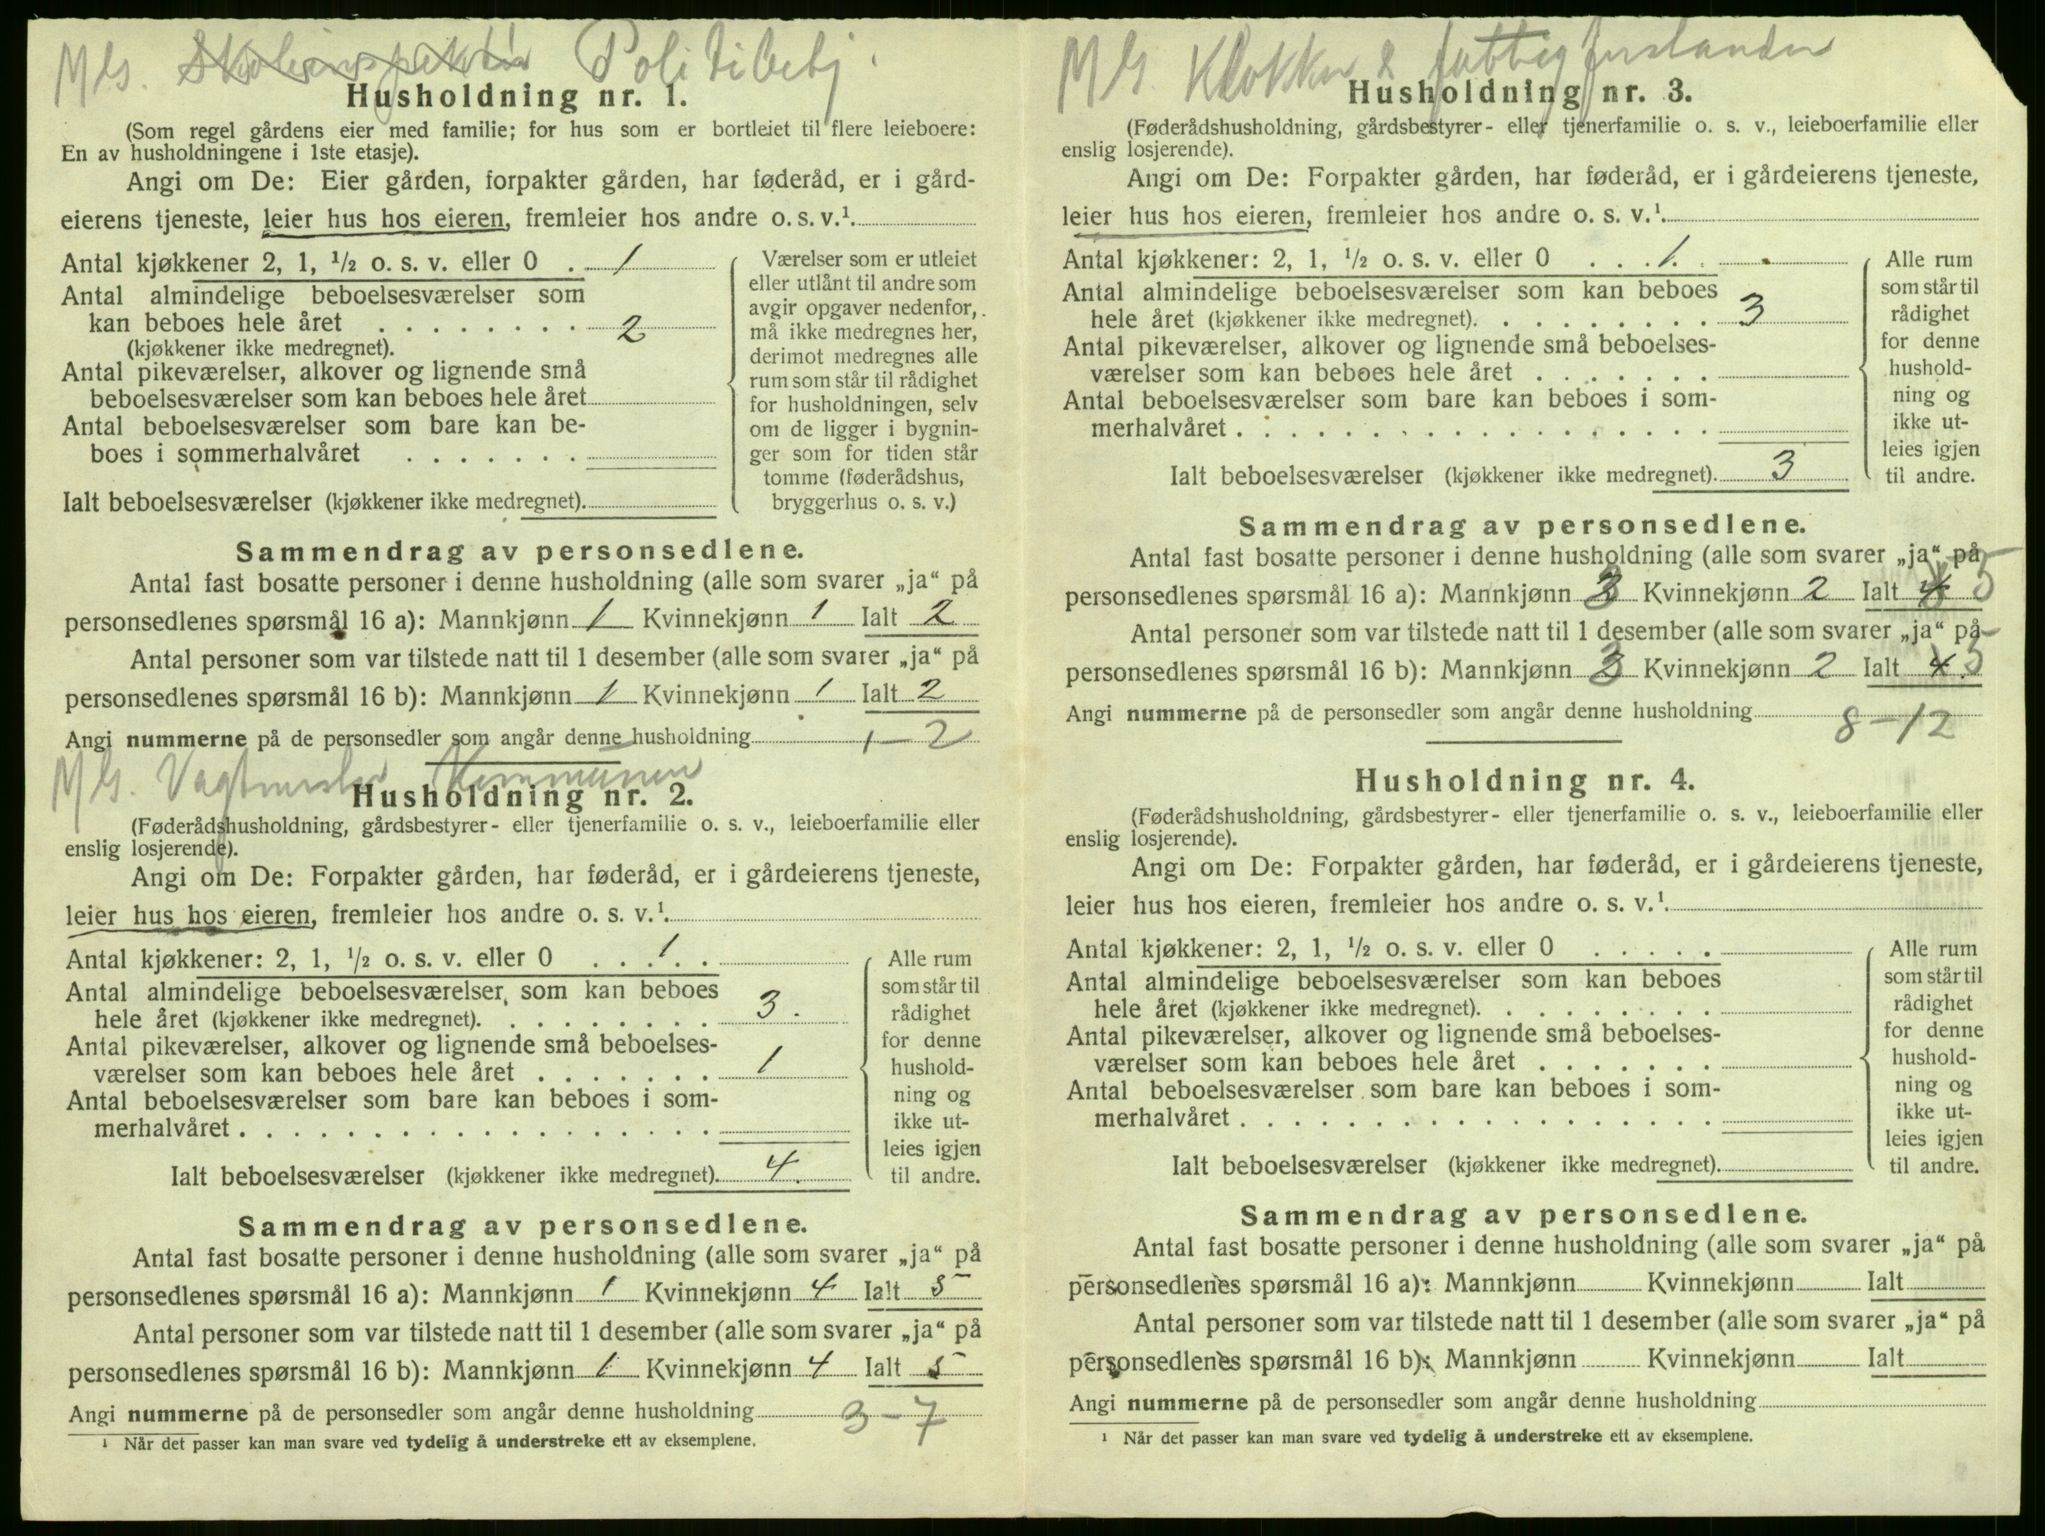 M G. Skoleinspektør Politibetj.
Husholdning nr. 1.
(Som regel gårdens eier med familie; for hus som er bortleiet til flere leieboere:
En av husholdningene i 1ste etasje).
Angi om De: Eier gården, forpakter gården, har føderåd, er i gård-
eierens tjeneste, leier hus hos eieren, fremleier hos andre o. s. v.¹.
Antal kjøkkener 2, 1, ½ o. s. v. eller 0 . 1
Antal almindelige beboelsesværelser som
kan beboes hele året . . . . . . . . 2
(kjøkkener ikke medregnet).
Antal pikeværelser, alkover og lignende små
beboelsesværelser som kan beboes hele året
Antal beboelsesværelser som bare kan be-
boes i sommerhalvåret . . . . . . .
Ialt beboelsesværelser (kjøkkener ikke medregnet).
Værelser som er utleiet
eller utlånt til andre som
avgir opgaver nedenfor,
må ikke medregnes her,
derimot medregnes alle
rum som står til rådighet
for husholdningen, selv
om de ligger i bygnin-
ger som for tiden står
tomme (føderådshus,
bryggerhus o. s. v.)
Sammendrag av personsedlene.
Antal fast bosatte personer i denne husholdning (alle som svarer „ja“ på
personsedlenes spørsmål 16 a): Mannkjønn 1 Kvinnekjønn 1 Ialt 2
Antal personer som var tilstede natt til 1 desember (alle som svarer „ja“ på
personsedlenes spørsmål 16 b): Mannkjønn 1 Kvinnekjønn 1 Ialt 2
Angi nummerne på de personsedler som angår denne husholdning 1-2
M G. Vagtmester Kommunen
Husholdning nr. 2.
(Føderådshusholdning, gårdsbestyrer- eller tjenerfamilie o. s. v., leieboerfamilie eller
enslig losjerende).
Angi om De: Forpakter gården, har føderåd, er i gårdeierens tjeneste,
leier hus hos eieren, fremleier hos andre o. s. v.¹.
Antal kjøkkener: 2, 1, ½ o. s. v. eller 0 . . . 1 . .
Antal almindelige beboelsesværelser som kan beboes
hele året (kjøkkener ikke medregnet). . . . . . . . . 3.
Antal pikeværelser, alkover og lignende små beboelses-
værelser som kan beboes hele året . . . . . . . 1
Antal beboelsesværelser som bare kan beboes i som-
merhalvåret . . . . . . . . . . . . . . . . . .
Ialt beboelsesværelser (kjøkkener ikke medregnet). 4.
Alle rum
som står til
rådighet
for denne
hushold-
ning og
ikke ut-
leies igjen
til andre.
Sammendrag av personsedlene.
Antal fast bosatte personer i denne husholdning (alle som svarer „ja“ på
personsedlenes spørsmål 16 a): Mannkjønn 1 Kvinnekjønn 4 Ialt 5
Antal personer som var tilstede natt til 1 desember (alle som svarer „ja“ på
personsedlenes spørsmål 16 b): Mannkjønn 1 Kvinnekjønn 4 Ialt 5
Angi nummerne på de personsedler som angår denne husholdning 3-7
¹ Når det passer kan man svare ved tydelig å understreke ett av eksemplene.
M G. Klokker & fattigforstander
Husholdning nr. 3.
(Føderådshusholdning, gårdsbestyrer- eller tjenerfamilie o. s. v., leieboerfamilie eller
enslig losjerende).
Angi om De: Forpakter gården, har føderåd, er i gårdeierens tjeneste,
leier hus hos eieren, fremleier hos andre o. s. v.¹.
Antal kjøkkener: 2, 1, ½ o. s. v. eller 0 . . . 1. .
Antal almindelige beboelsesværelser som kan beboes
hele året (kjøkkener ikke medregnet). . . . . . . . . 3
Antal pikeværelser, alkover og lignende små beboelses-
værelser som kan beboes hele året . . . . . . .
Antal beboelsesværelser som bare kan beboes i som-
merhalvåret . . . . . . . . . . . . . . . . . .
Ialt beboelsesværelser (kjøkkener ikke medregnet). 3
Alle rum
som står til
rådighet
for denne
hushold-
ning og
ikke ut-
leies igjen
til andre.
Sammendrag av personsedlene.
Antal fast bosatte personer i denne husholdning (alle som svarer „ja“ på
personsedlenes spørsmål 16 a): Mannkjønn 3 Kvinnekjønn 2 Ialt 4 5
Antal personer som var tilstede natt til 1 desember (alle som svarer „ja“ på
personsedlenes spørsmål 16 b): Mannkjønn 3 Kvinnekjønn 2 Ialt 4 5
Angi nummerne på de personsedler som angår denne husholdning 8-12
Husholdning nr. 4.
(Føderådshusholdning, gårdsbestyrer- eller tjenerfamilie o. s. v., leieboerfamilie eller
enslig losjerende).
Angi om De: Forpakter gården, har føderåd, er i gårdeierens tjeneste,
leier hus hos eieren, fremleier hos andre o. s. v.¹.
Antal kjøkkener: 2, 1, ½ o. s. v. eller 0 . . . . .
Antal almindelige beboelsesværelser som kan beboes
hele året (kjøkkener ikke medregnet). . . . . . . . .
Antal pikeværelser, alkover og lignende små beboelses-
værelser som kan beboes hele året . . . . . . .
Antal beboelsesværelser som bare kan beboes i som-
merhalvåret . . . . . . . . . . . . . . . . . .
Ialt beboelsesværelser (kjøkkener ikke medregnet).
Alle rum
som står til
rådighet
for denne
hushold-
ning og
ikke ut-
leies igjen
til andre.
Sammendrag av personsedlene.
Antal fast bosatte personer i denne husholdning (alle som svarer „ja“ på
personsedlenes spørsmål 16 a): Mannkjønn Kvinnekjønn Ialt
Antal personer som var tilstede natt til 1 desember (alle som svarer „ja“ på
personsedlenes spørsmål 16 b): Mannkjønn Kvinnekjønn Ialt
Angi nummerne på de personsedler som angår denne husholdning
¹ Når det passer kan man svare ved tydelig å understreke ett av eksemplene.